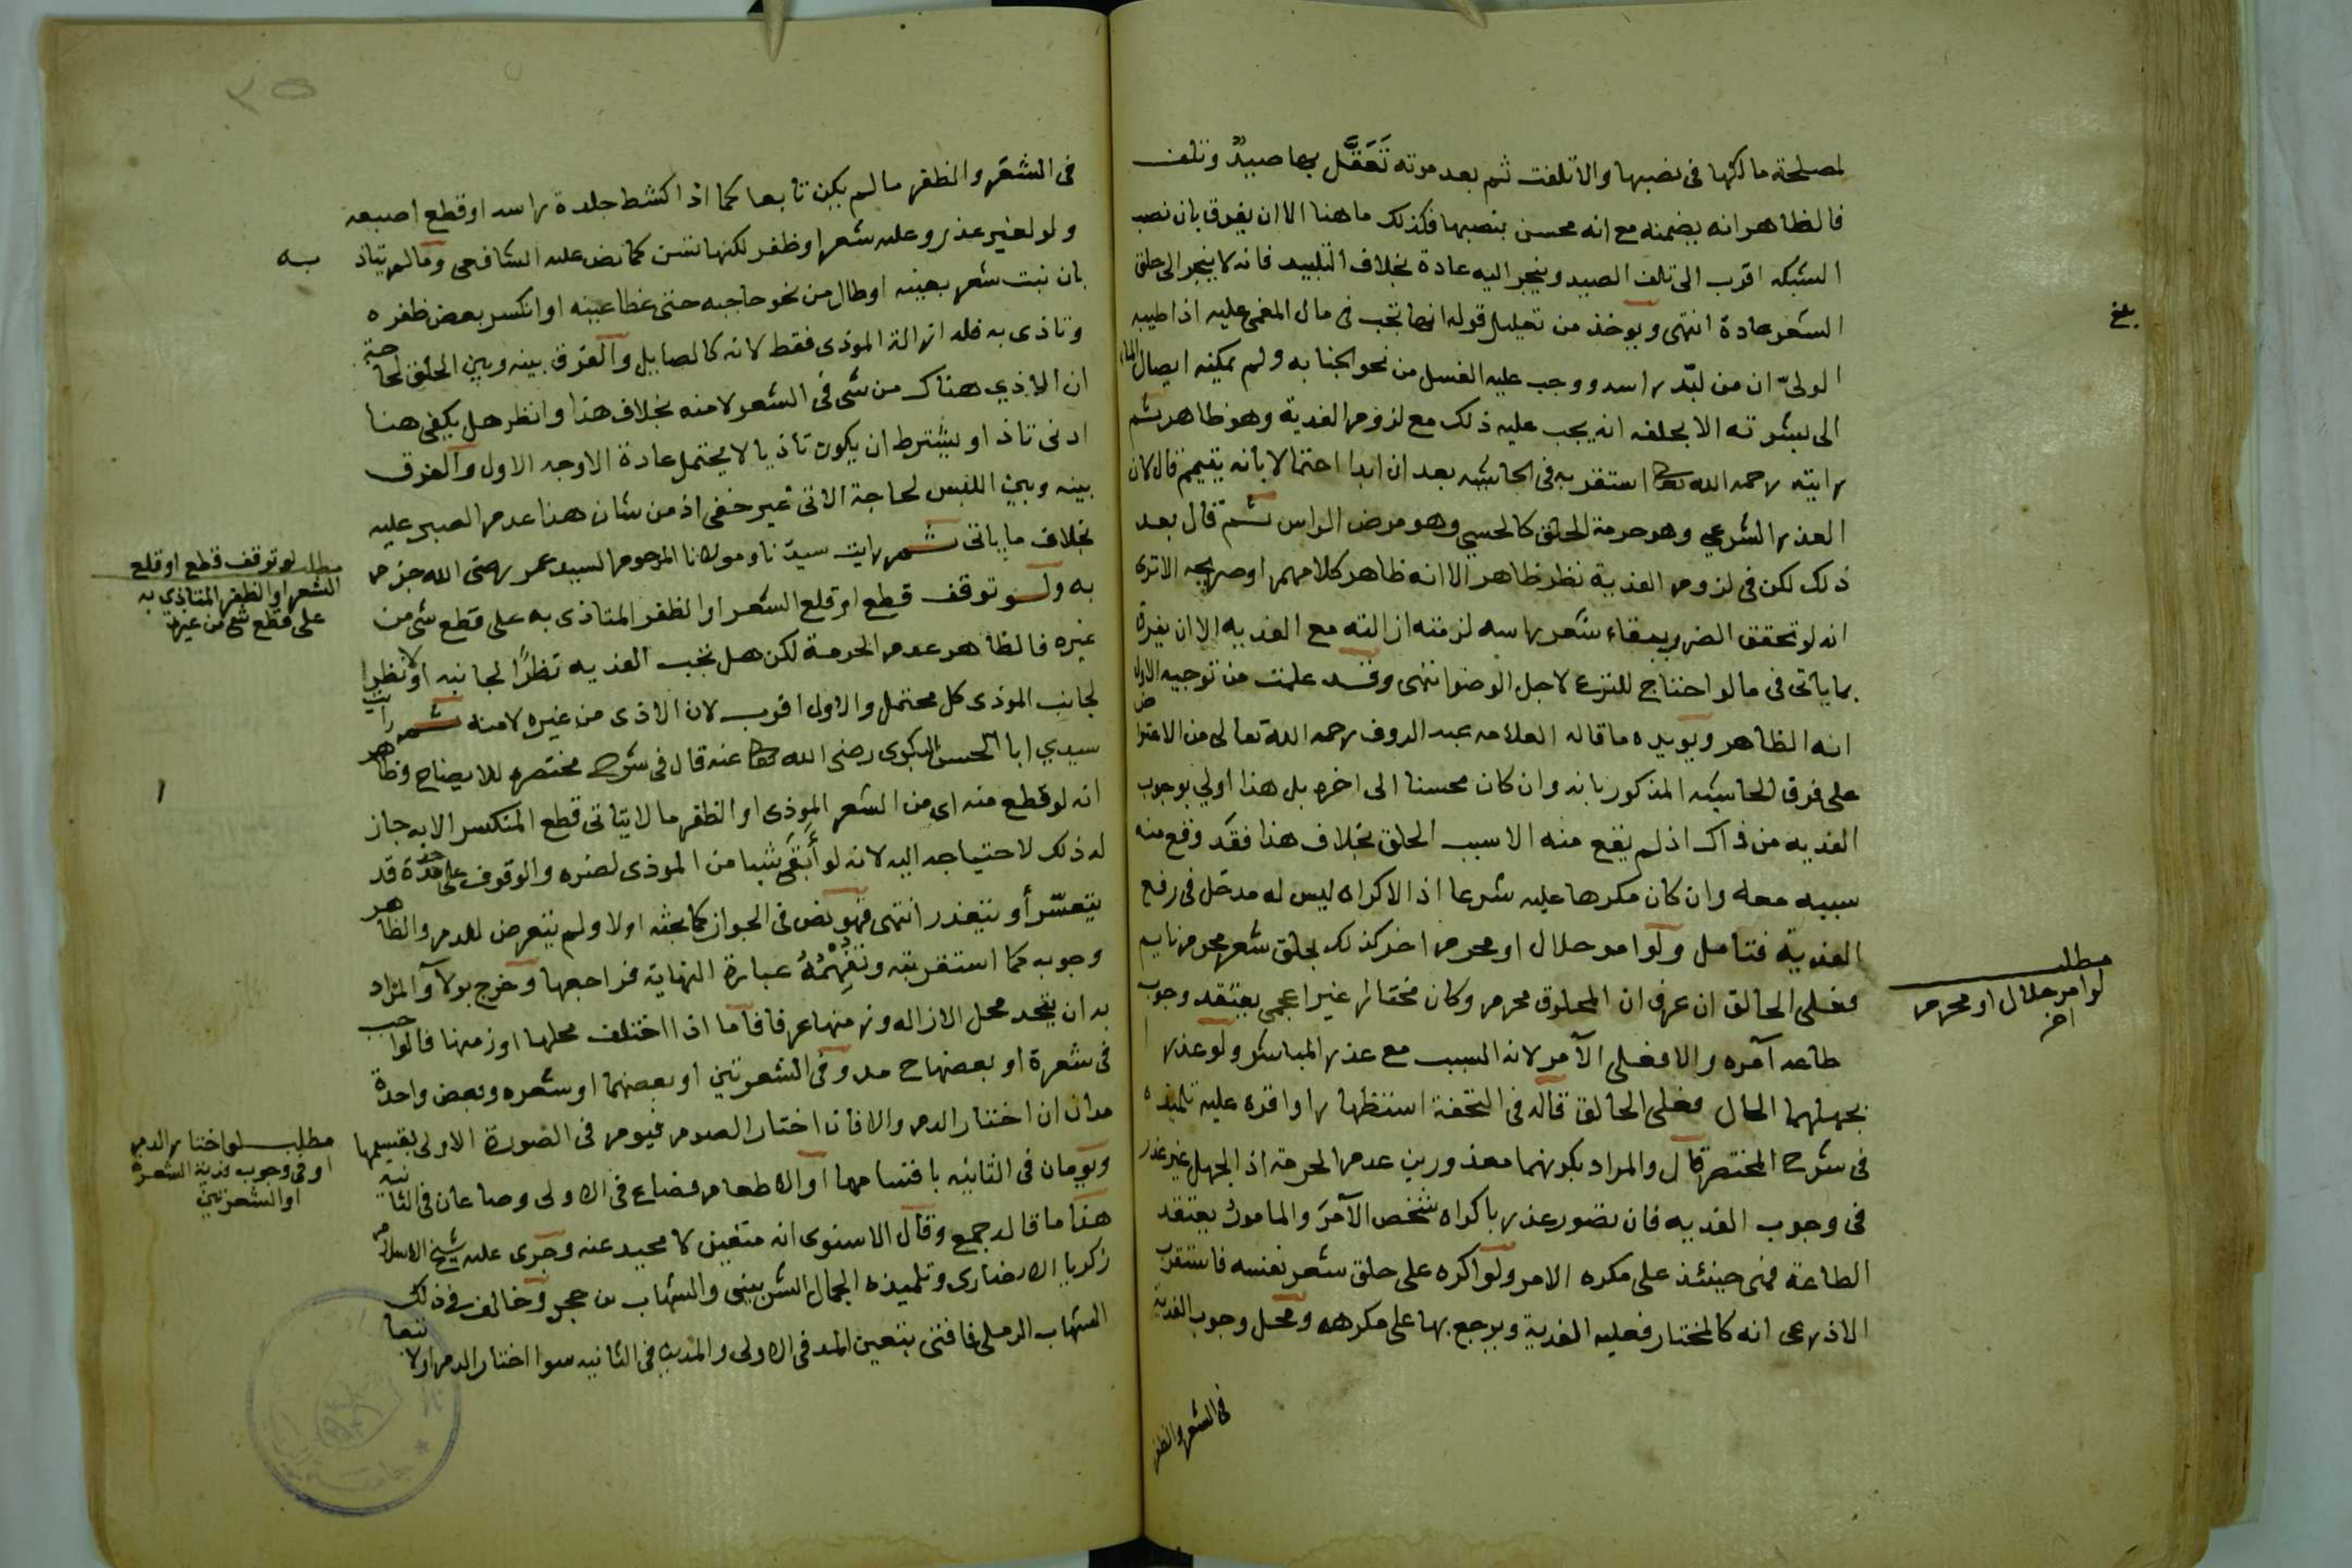 لمصلحة مالكها في نصبها والا تلفت ثم بعد موته تَعَقَّل بها صيدٌ وتلف
فالظاهر انه يضمنه مع انه محسن بنصبها فكذلك ما هنا الا ان يفرق بان نصب
الشبكه اقرب الى تلف الصيد وينجر اليه عادة بخلاف التلبيد فانه لا ينجر الى حلق
الشعر عادة انتهى ويوخذ من تعليل قوله انها تجب في مال المغمى عليه اذا طيبه
بلغ
الوليّ ان من لبّد راسه ووجب عليه الغسل من نحو الجنابه ولم يمكنه ايصال الماء
الى بشرته الا بحلقه انه يجب عليه ذلك مع لزوم الفدية وهو ظاهر ثم
رايته رحمه الله تعالى استقر به في الحاشيه بعد ان ابدا احتمالا بانه يتيمم قال لان
العذر الشرعي وهو حرمة الحلق كالحسي وهو مرض الراس ثم قال بعد
ذلك لكن في لزوم الفدية نظر ظاهر الا انه ظاهر كلامهم او صريحه الا ترى
انه لو تحقق الضرر ببقاء شعر راسه لزمته ازالته مع الفديه الا ان يفرق
بما ياتي في ما لو احتاج للنزع لاجل الوضو انتهى وقد علمت من توجيه الاول
انه الظاهر ويويده ما قاله العلامه عبد الروف رحمه الله تعالى من الاعتراض
على فرق الحاشيه المذكور بانه وان كان محسنا الى اخره بل هذا اولي بوجوب
الفديه من ذاك اذ لم يقع منه الا سبب الحلق بخلاف هذا فقد وقع منه
سببه معه وان كان مكرها عليه شرعا اذ الاكراه ليس له مدخل في رفع
الفدية فتامل ولو امر حلال او محرم اخر كذلك بحلق شعر محرم نايم
مطلب
لو امر حلال او محرم
اخر
فعلى الحالق ان عرف ان المحلوق محرم وكان مختارا غير اعجمي يعتقد وجوب
طاعه آمره والا فعلى الآمر لانه السبب مع عذر المباشر ولو عذرا
بجهلهما الحال فعلى الحالق قاله في التحفة استظهارا واقره عليه تلميذه
في شرح المختصر قال والمراد بكونهما معذورين عدم الحرمة اذ الجهل غير عذر
في وجوب الفديه فان تصور عذر باكراه شخص الآمرَ والمامورُ يعتقد
الطاعة فهي حينئذ على مكره الامر ولو اكره على حلق شعر نفسه فاستقرب
الاذرعى انه كالمختار فعليه الفدية ويرجع بها على مكرهه ومحل وجوب الفدية
في الشعر والظفر
٣٥
في الشعر والظفر ما لم يكن تابعا كما اذا كشط جلدة راسه او قطع اصبعه
ولو لغير عذر وعليه شعر او ظفر لكنها تسن كما نص عليه الشافعي وما لم يتاذ
به
بان نبت شعر بعينه او طال من نحو حاجبه حتى غطا عينه او انكسر بعض ظفره
وتاذى به فله ازالة الموذى فقط لانه كالصايل والفرق بينه وبين الحلق لحاجة
ان الاذي هناك من شى في الشعر لا منه بخلاف هذا وانظر هل يكفي هنا
ادنى تاذ او يشترط ان يكون تاذيا لا يحتمل عادة الاوجه الاول والفرق
بينه وبين اللبس لحاجة الاتى غير خفى اذ من شان هذا عدم الصبر عليه
بخلاف ما ياتى ثم رايت سيدنا ومولانا المرحوم السيد عمر رضى الله جزم
به ولو توقف قطع او قلع الشعر او الظفر المتاذى به على قطع شى من
مطلب لو توقف قطع او قلع
الشعر او الظفر المتاذي به
على قطع شى من غيره
غيره فالظاهر عدم الحرمة لكن هل تجب الفديه نظرًا لجانبه او لا نظرا
لجانب الموذى كل محتمل والاول اقرب لان الاذى من غيره لا منه ثم رايت
سيدي ابا الحسن البكري رضى الله تعالى عنه قال في شرح مختصره للايضاح وظاهر
انه لو قطع منه اى من الشعر الموذى او الظفر ما لا يتاتى قطع المنكسر الا به جاز
له ذلك لاحتياجه اليه لانه لو أَبقَى شيا من الموذى لضره والوقوف على حدة قد
يتعسّر أو يتعذر انتهى فهو نص في الجواز كما بحثه اولا ولم يتعرض للدم والظاهر
وجوبه كما استقربته وتفهمه عبارة النهاية فراجعها وخرج بولآ والمراد
به ان يتحد محل الازاله وزمنها عرفا فاما اذا اختلف محلها او زمنها فالواجب
في شعرة او بعضها مد وفي الشعرتين او بعضهما او شعره وبعض واحدة
مدان ان اختار الدم والا فان اختار الصوم فيوم في الصورة الاولى بقسيمها
مطلب لو اختار الدم
او في وجوب فدية الشعرة
او الشعرتين
ويومان في الثانيه باقتسامها او الاطعام فصاع في الاولى وصاعان في الثانيه
هذا ما قاله جمع وقال الاسنوى انه متعين لا محيد عنه وجرى عليه شيخ الاسلام
زكريا الانصارى وتلميذه الجمال الشربيني والشهاب بن حجر وخالف في ذلك
الشهاب الرملى فافتى بتعين المد في الاولى والمدين في الثانيه سوا اختار الدم اولا تبعا